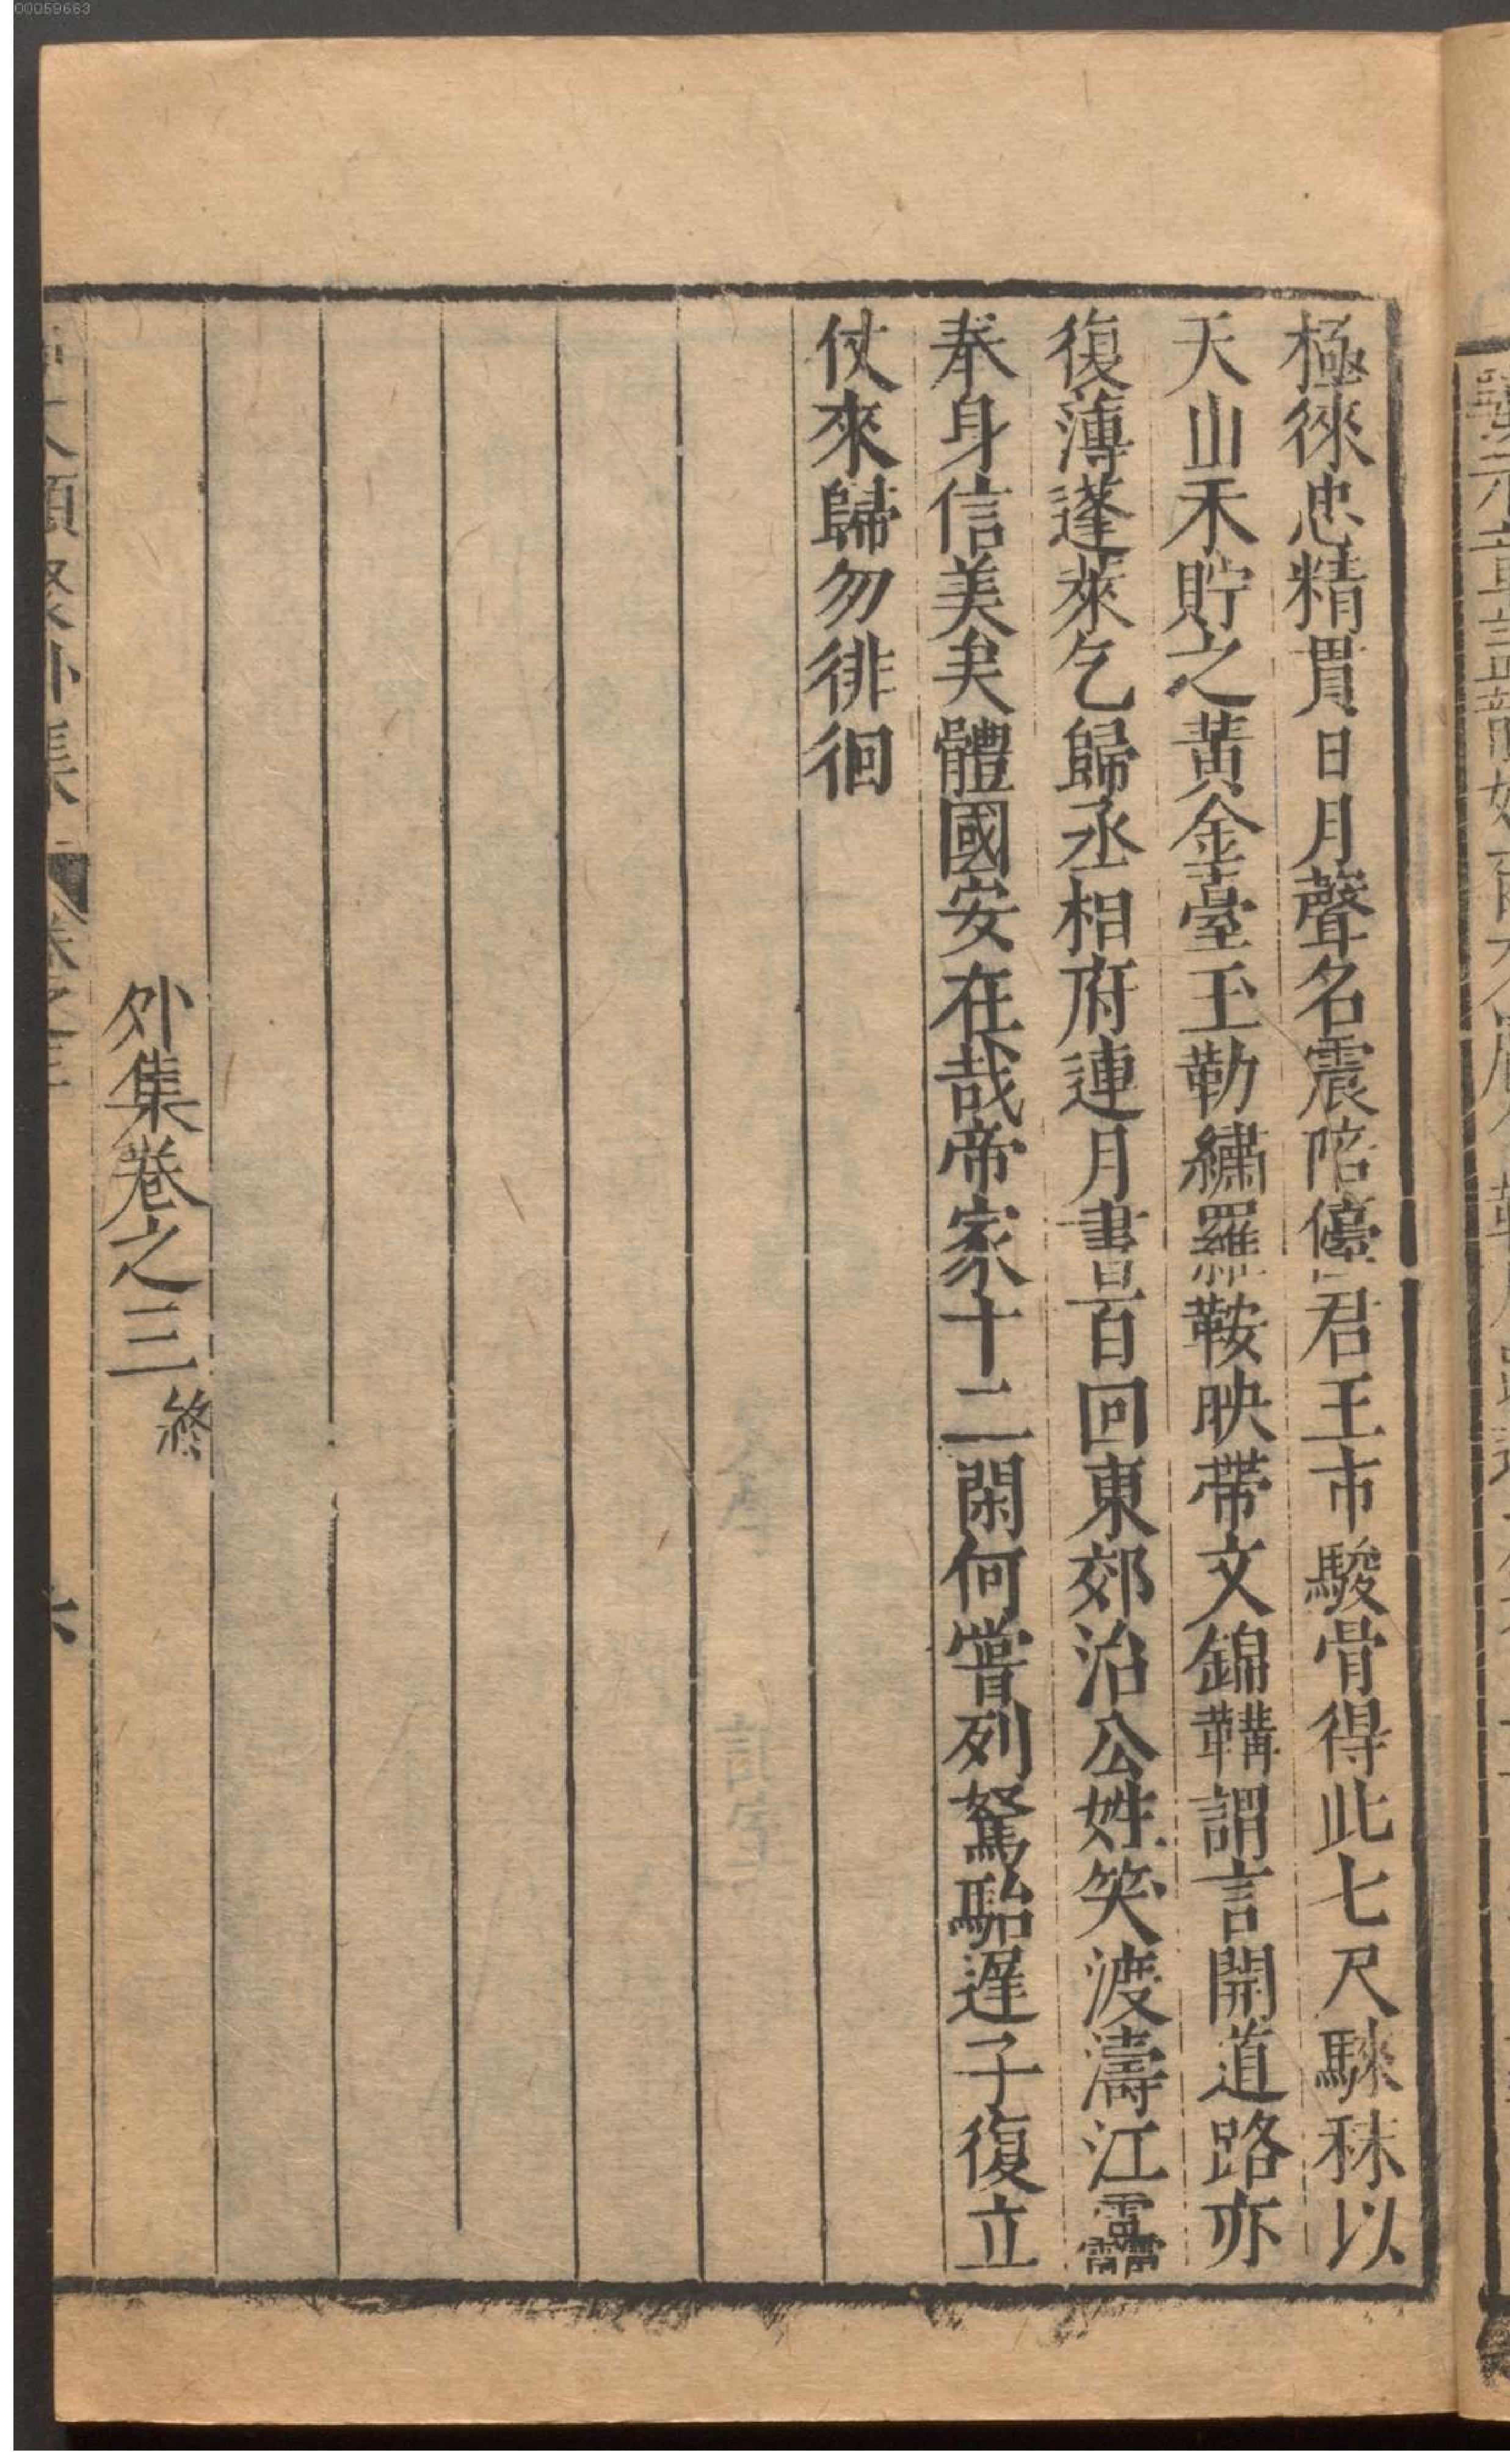 00059663
極徠忠精貫日月聲名震陪僮君王市駿骨得此七尺騋秣以
天山禾貯之黃金臺玉勒繡羅鞍映帶文錦鞲謂言開道路亦
復薄蓬萊乞歸丞相府連月書百回東郊治公姓笑渡濤江靐
奉身信美矣體國安在哉帝家十二閑何嘗列駑駘遲子復立
仗來歸勿徘徊
外集卷之三終